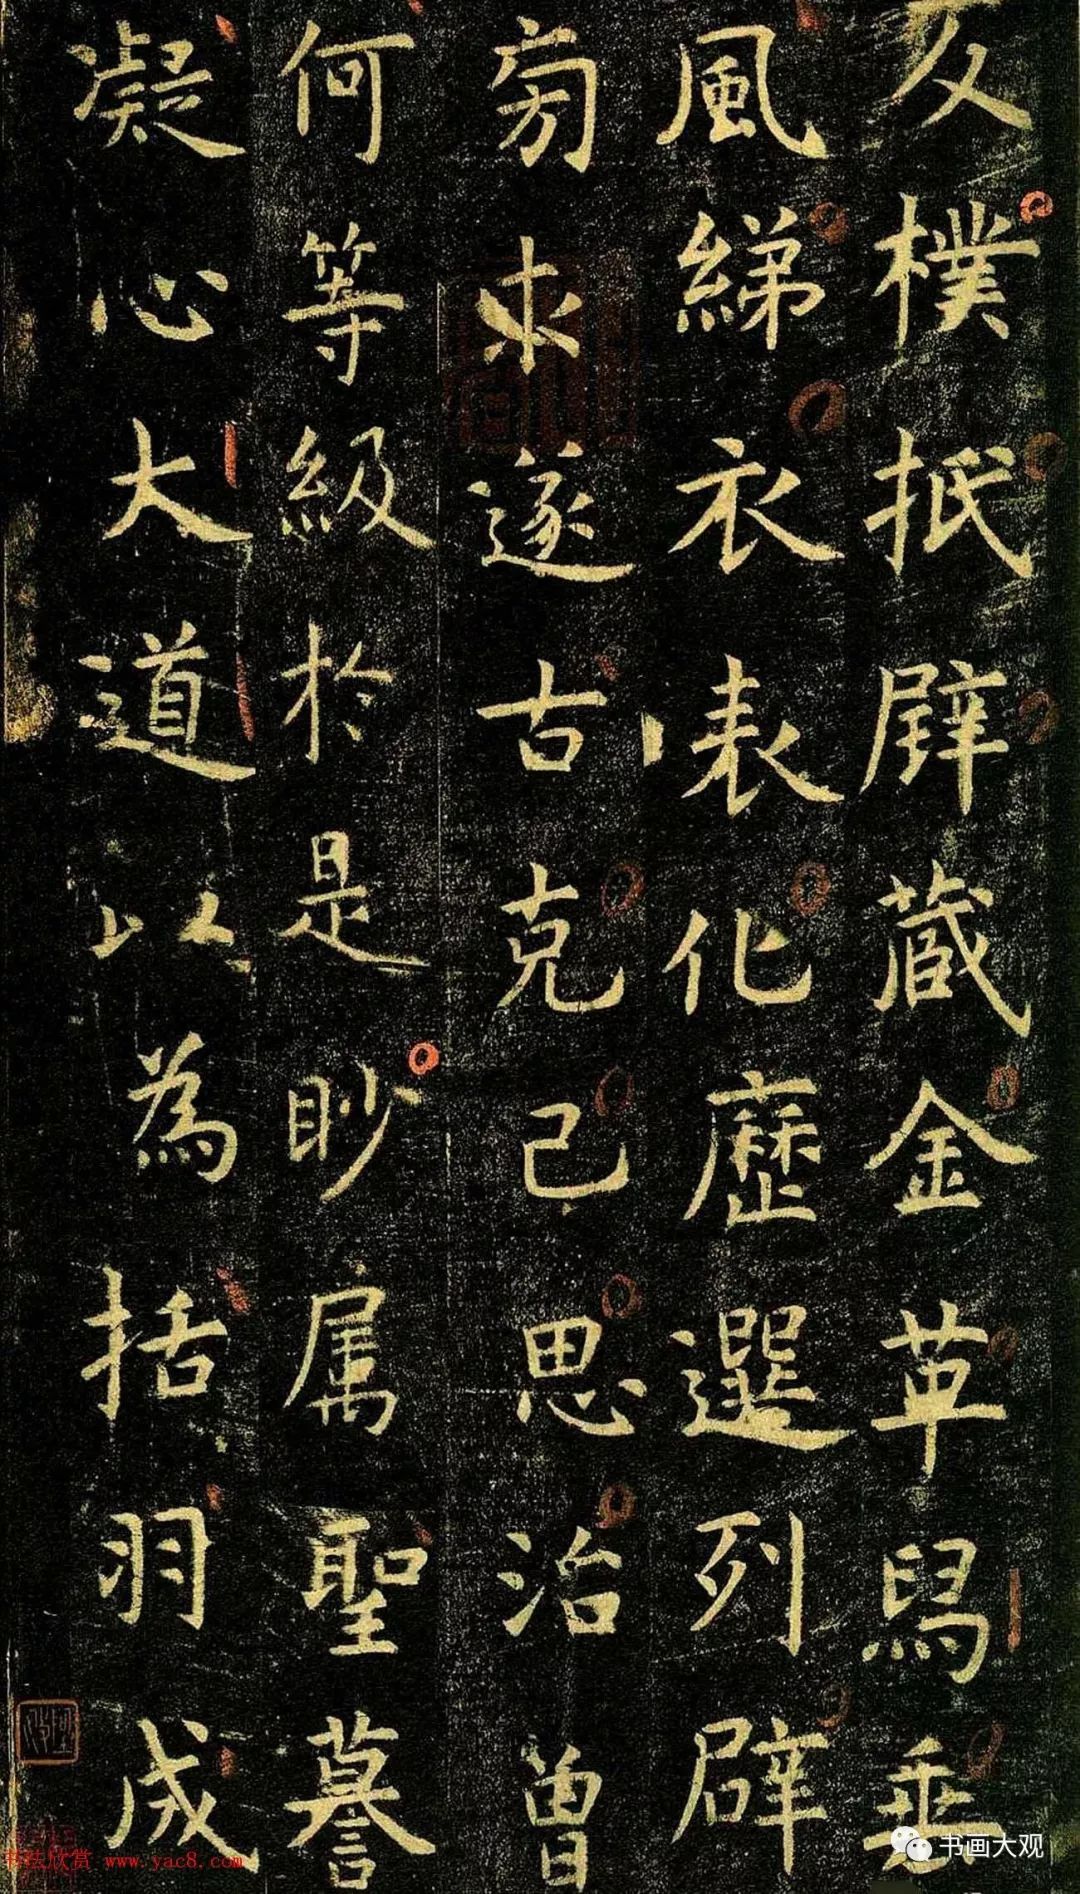 反樸抵璧藏金革舄垂
風綈衣表化歷選列辟
旁求遂古克己思治曾
何等級於是眇屬聖謩
凝心大道以為括羽成
书画大观
书法欣赏 www.yac8.com